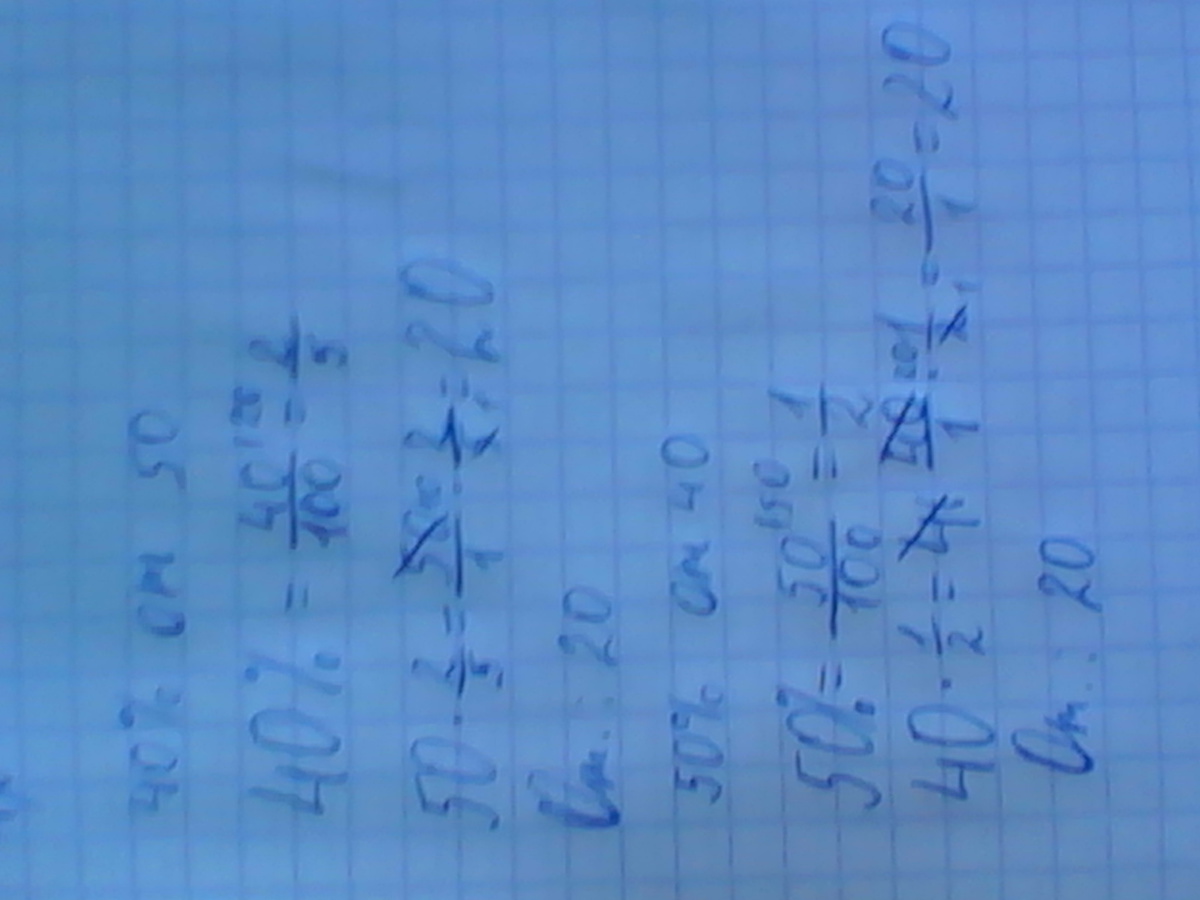 40% от 50
40% = 40/100 |20 = 2/5
50 · 2/5 = 50/1 · 2/5 = 20
От.: 20
50% от 40
50% = 50/100 |50 = 1/2
40 · 1/2 = 1/2 = 20/1 = 20
От.: 20